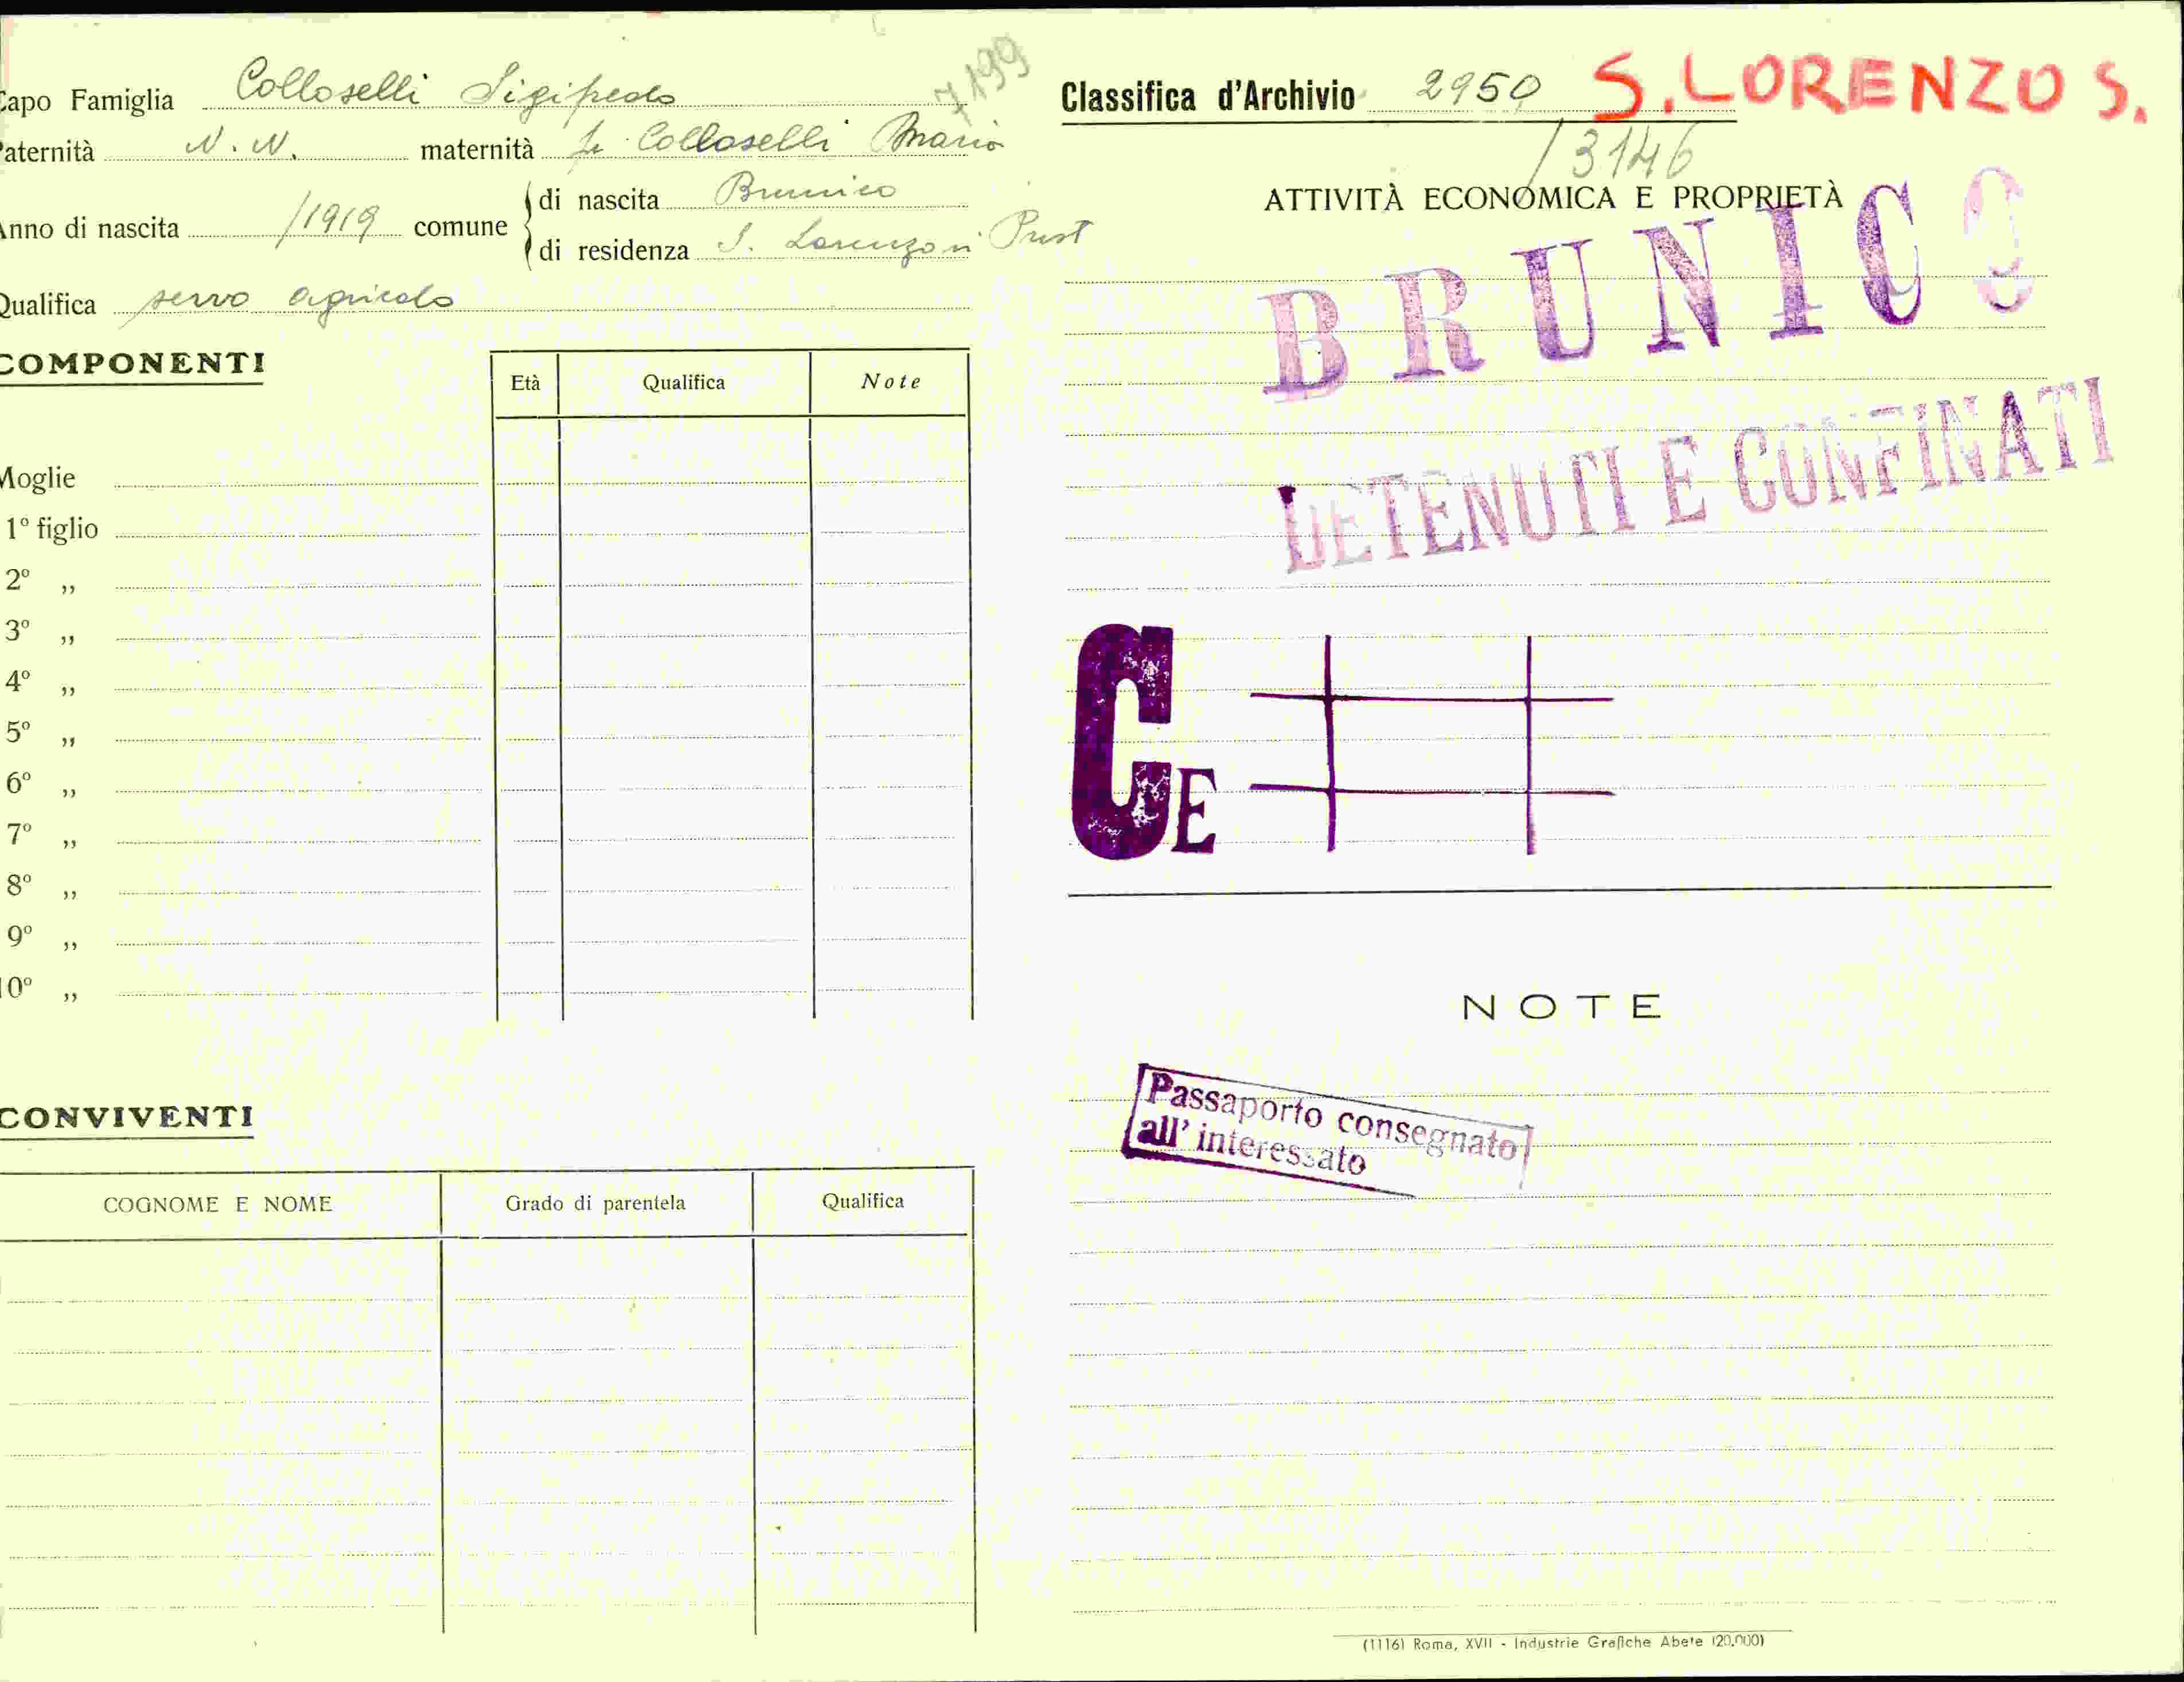 Capo Famiglia Colloselli Sigifredo 7199
Paternità N. N. maternità fu Colloselli Maria
Anno di nascita /1919 comune di nascita Brunico
di residenza S. Lorenzo in Pust
Qualifica servo agricolo
COMPONENTI
Età Qualifica Note
Moglie
1° figlio
2° „
3° „
4° „
5° „
6° „
7° „
8° „
9° „
10° „
CONVIVENTI
COGNOME E NOME Grado di parentela Qualifica
Classifica d'Archivio 2950 S. LORENZO S.
/3146
ATTIVITÀ ECONOMICA E PROPRIETÀ
BRUNICO
DETENUTI E CONFINATI
CE
NOTE
Passaporto consegnato
all' interessato
(1116) Roma, XVII - Industrie Grafiche Abete (20.000)